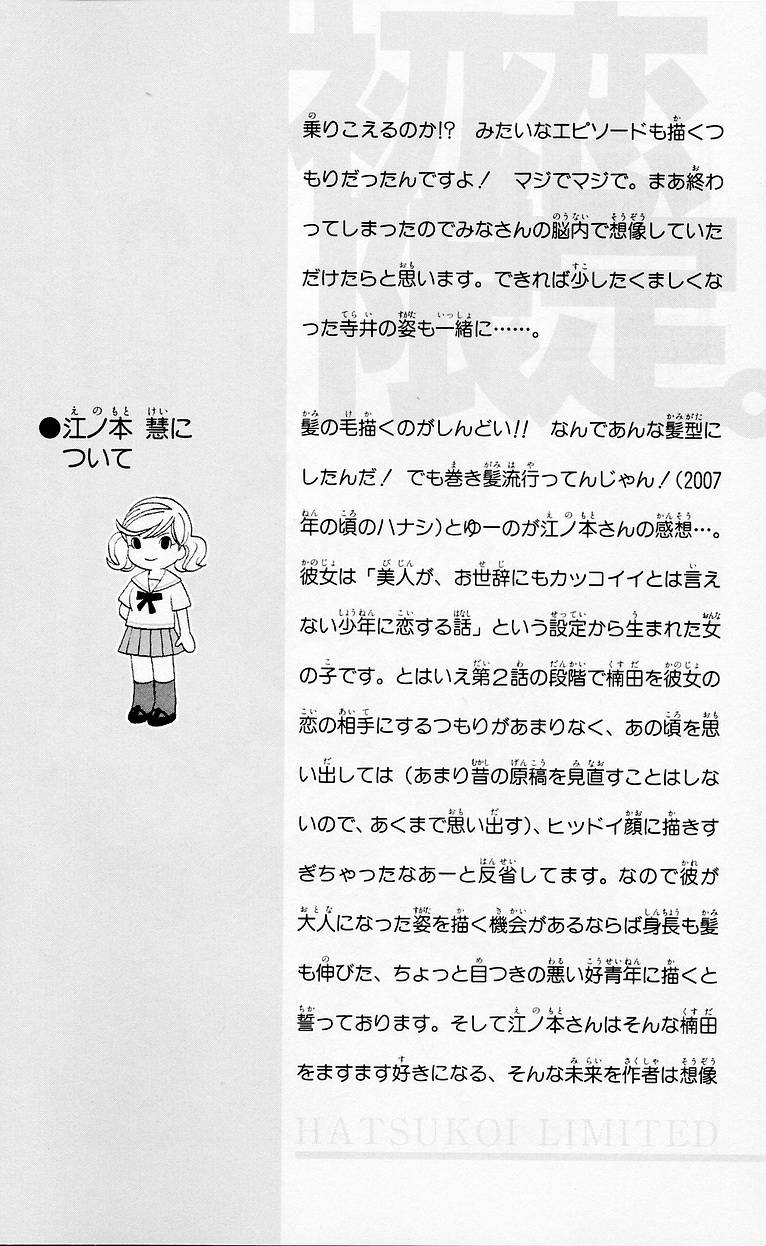 初恋限定。
乗りこえるのか!? みたいなエピソードも描くつ
もりだったんですよ! マジでマジで。まあ終わ
ってしまったのでみなさんの脳内で想像していた
だけたらと思います。できれば少したくましくな
った寺井の姿も一緒に……。
●江ノ本 慧に
ついて
髪の毛描くのがしんどい!! なんであんな髪型に
したんだ! でも巻き髪流行ってんじゃん!(2007
年の頃のハナシ)とゆーのが江ノ本さんの感想…。
彼女は「美人が、お世辞にもカッコイイとは言え
ない少年に恋する話」という設定から生まれた女
の子です。とはいえ第2話の段階で楠田を彼女の
恋の相手にするつもりがあまりなく、あの頃を思
い出しては(あまり昔の原稿を見直すことはしな
いので、あくまで思い出す)、ヒッドイ顔に描きす
ぎちゃったなあーと反省してます。なので彼が
大人になった姿を描く機会があるならば身長も髪
も伸びた、ちょっと目つきの悪い好青年に描くと
誓っております。そして江ノ本さんはそんな楠田
をますます好きになる、そんな未来を作者は想像
HATSUKOI LIMITED